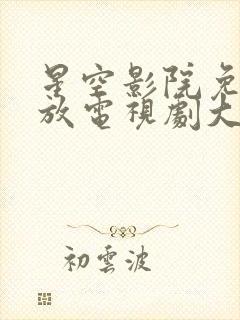 星空影院免
放電視劇大
初雲波